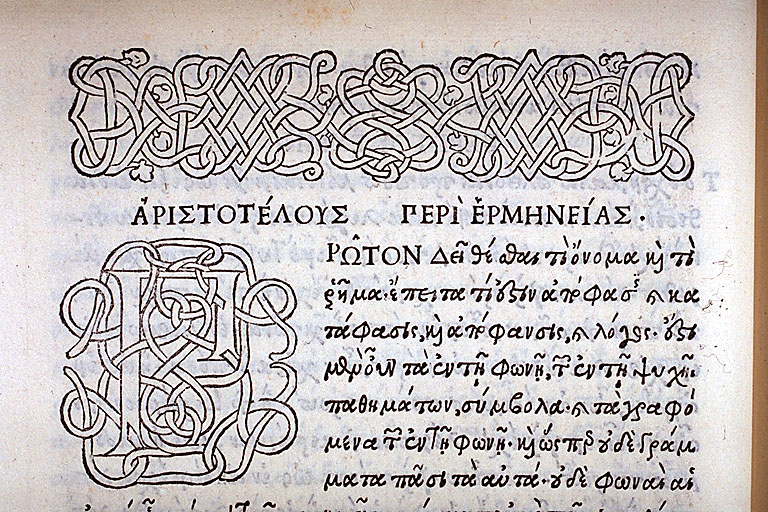 ἈΡΙΣΤΟΤΈΛΟΥΣ ΠΕΡῚ ἙΡΜΗΝΕΊΑΣ.
ΡΩ͂ΤΟΝ ΔΕῖ θέσθαι τί ὄνομα κὶ τί
ῥῆμα· ἔπειτα τί ὅζιν ἀπόφασις κὶ κα
τάφασις, κὶ ἀπόφανσις, κὶ λόγος· ὅζι
μὲν οὖν τὰ ἐν τῇ φωνῇ, τῶν ἐν τῇ ψυχῇ
παθημάτων, σύμβολα· κὶ τὰ γραφό
μενα τῶν ἐν τῇ φωνῇ· κὶ ὥσπερ οὐδὲ γράμ
ματα πᾶσι τὰ αὐτά· οὐδὲ φωναὶ αἱ